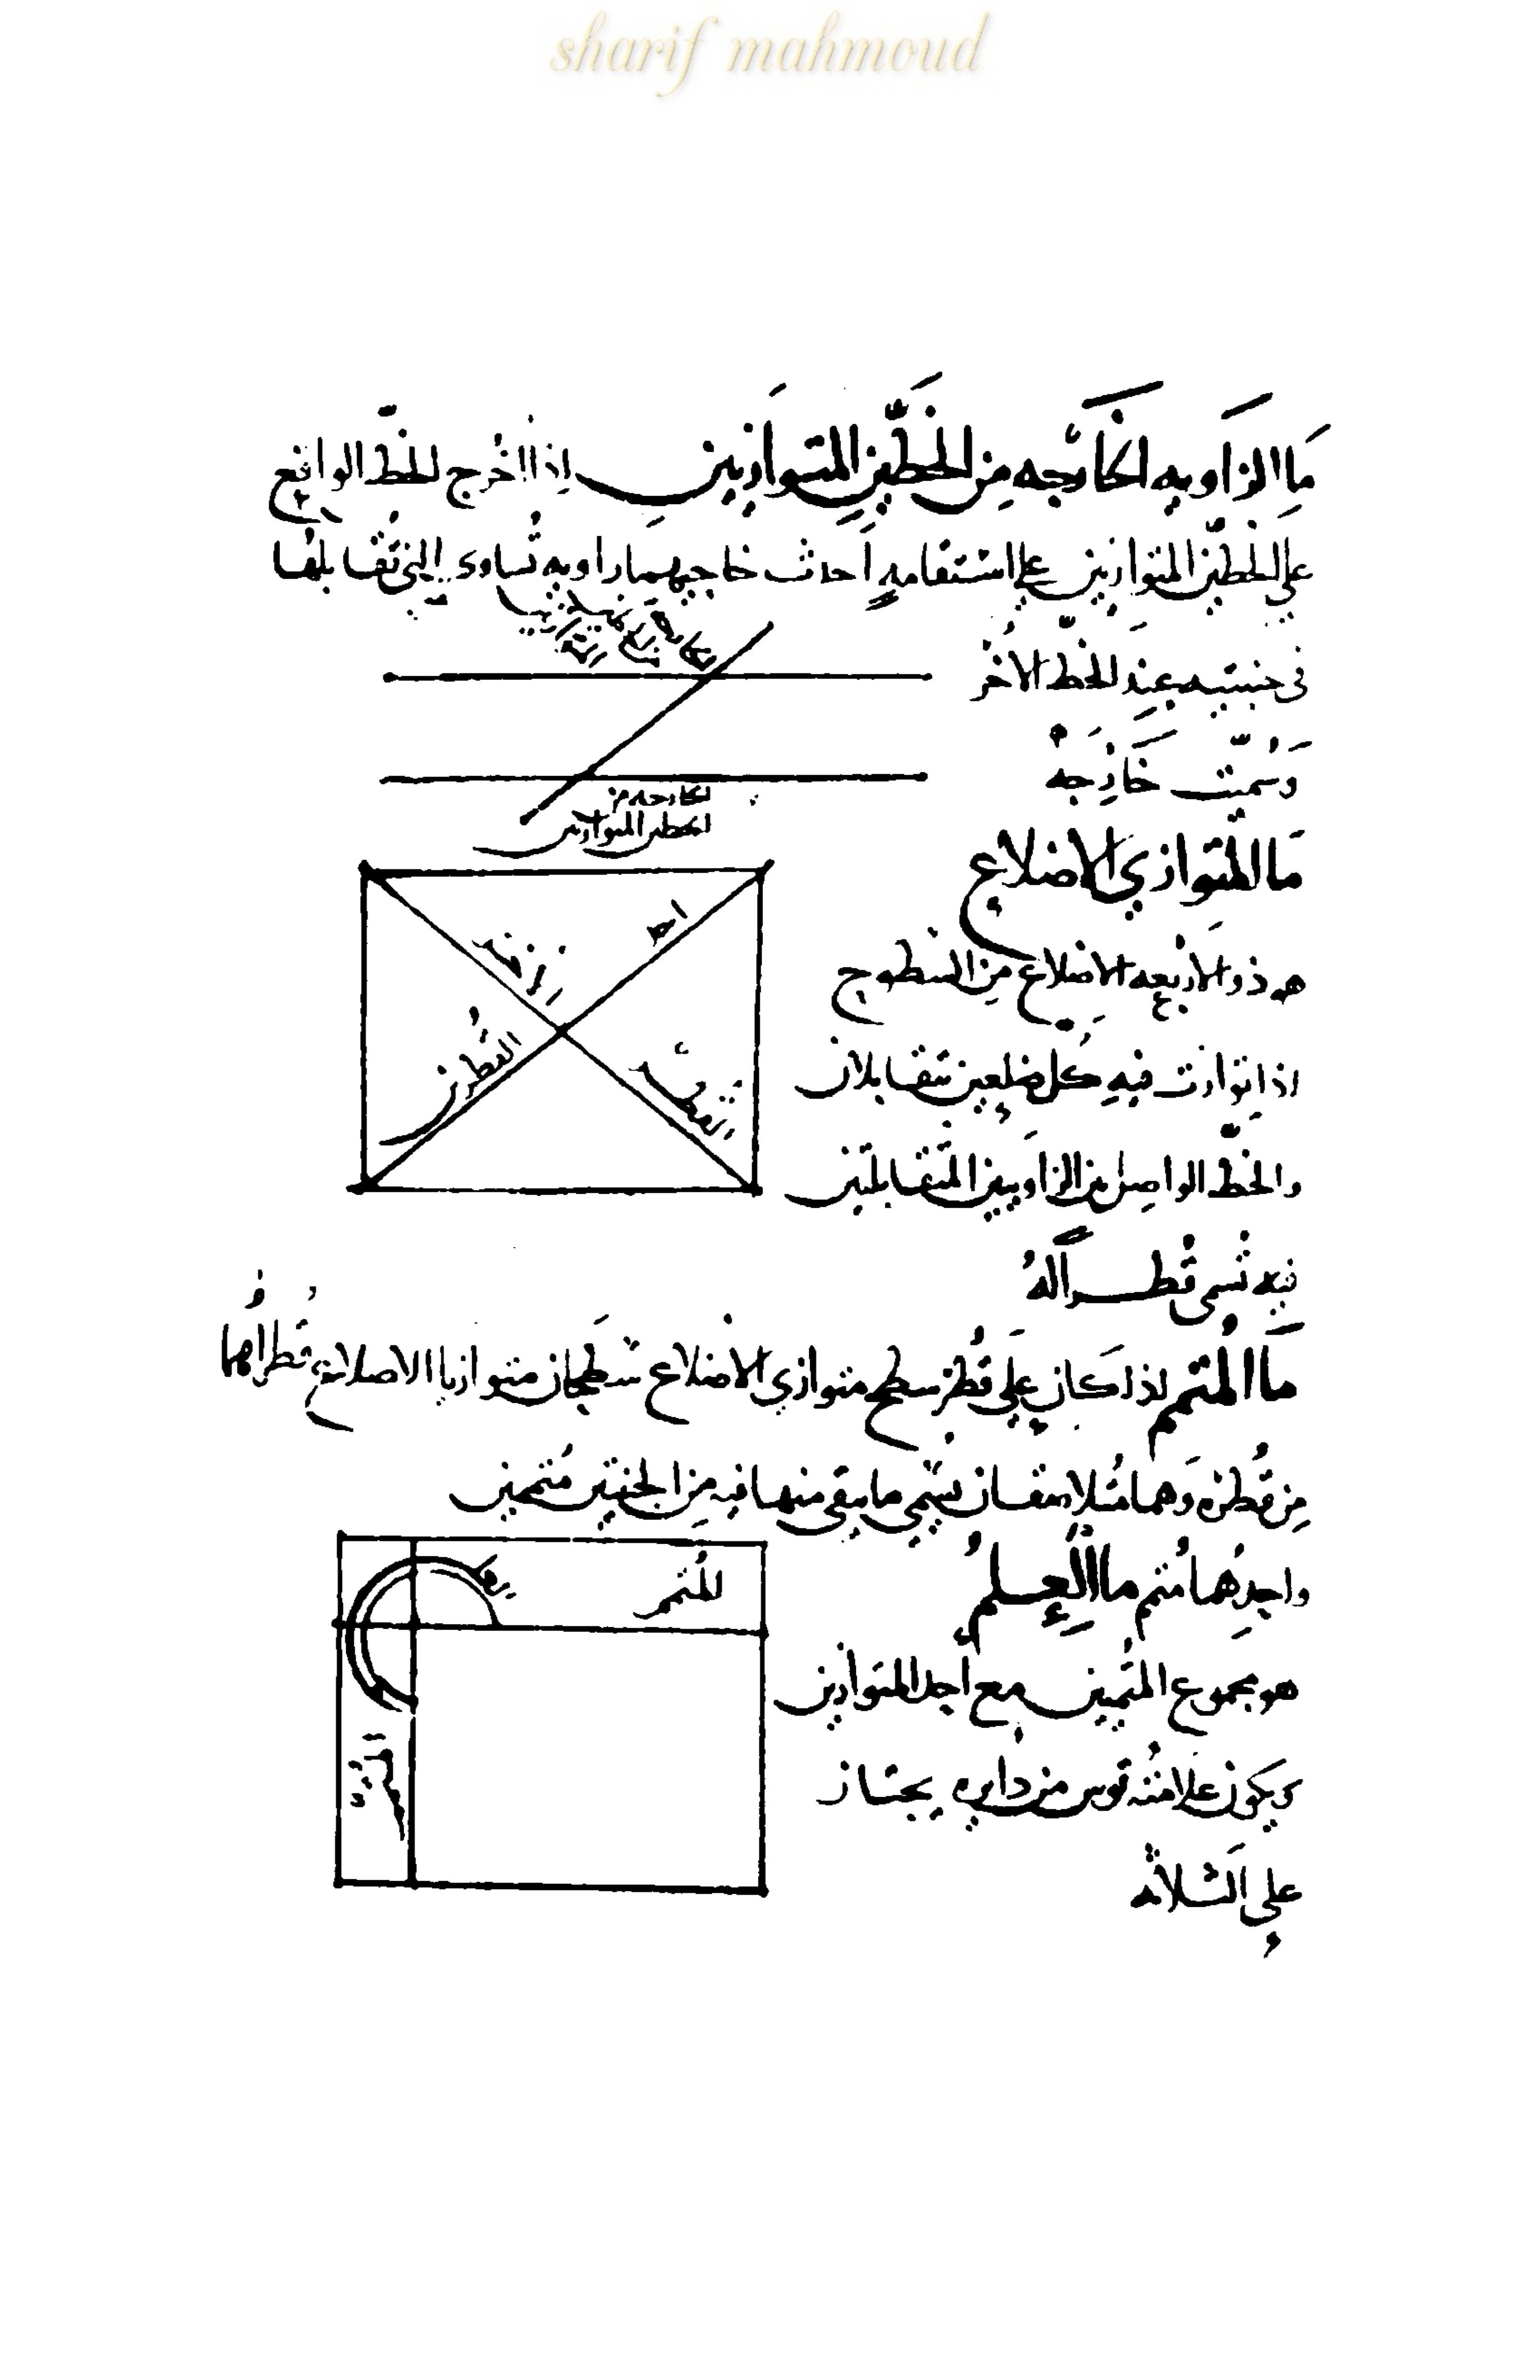 sharif mahmoud
ما الزاويه الخارجه من الخطين المتوازيين اذا اخرج الخط الواقع
على الخطين المتوازيين على استقامه احدث خارجهما زاويه تساوى التي تقابلها
في جنبتيه عند الخط الآخر
وسميت خارجه
الخارجه من
الخطين المتوازيين
ما المتوازي الاضلاع
هو ذو الاربعه الاضلاع من السطوح
اذا توازت فيه كل ضلعين تتقابلان
والخط الواصل بين الزاويتين المتقابلتين
فيه تسمى قطرا له
احد
القطرين
ما المتمم اذا كان على قطر سطح متوازي الاضلاع سطحان متوازيا الاضلاع قطراهما
من قطره وهما متلاصقان تسمى ما يبقى منهما فيه من الجنبتين متممين
واحدهما متمم ما العلم
المتمم
هو مجموع المتممين مع احد المتوازيين
ويكون علامته قوس من دايره يجتاز
على الثلاثه
المتمم